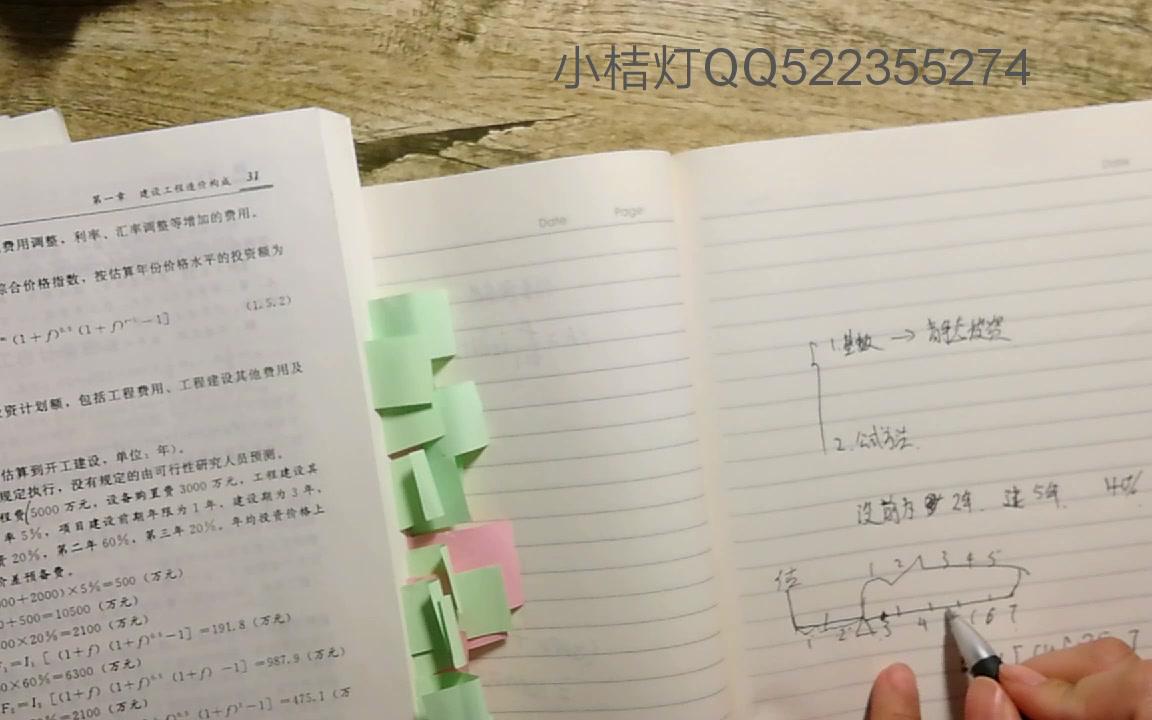 小桔灯QQ522355274
第一章 建设工程造价构成 31
费用调整，利率、汇率调整等增加的费用。
综合价格指数，按估算年份价格水平的投资额为
(1+f)^0.5 (1+f)^t-1 -1] (1.5.2)
资计划额，包括工程费用、工程建设其他费用及
估算到开工建设，单位：年）。
规定执行，没有规定的由可行性研究人员预测。
程费5000万元，设备购置费3000万元，工程建设其
率5%，项目建设前期年限为1年，建设期为3年，
资20%，第二年60%，第三年20%，年均投资价格上
价差预备费。
00+2000)×5%=500（万元）
0+500=10500（万元）
00×20%=2100（万元）
=I₁[(1+f)(1+f)^0.5-1]=191.8（万元）
0×60%=6300（万元）
F₂=I₂[(1+f)(1+f)^0.5(1+f)-1]=987.9（万元）
%=2100（万元）
(1+f)²-1]=475.1（万
Date Page
Date
1.基数 → 静态投资
2.公式方法
没前方 2年. 建5年. 40%
估 1 2 3 4 5
1 2 3 4 6 7